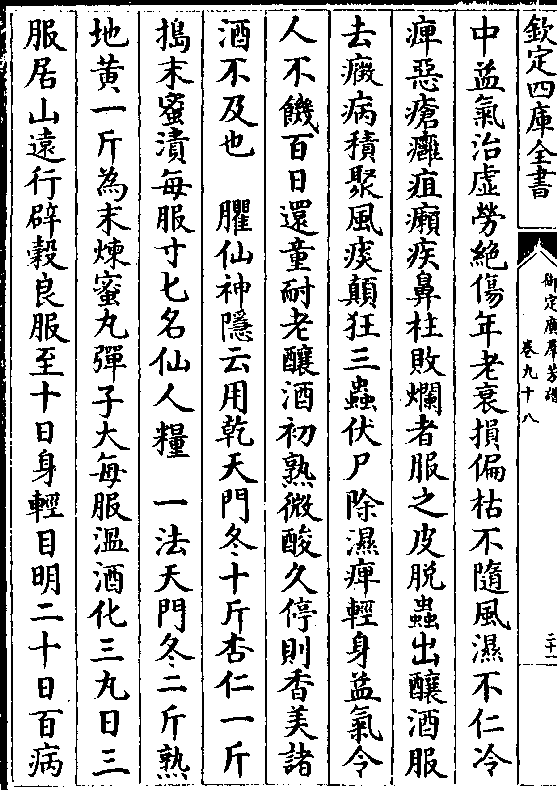 欽定四庫全書
御定廣羣芳譜
卷九十八
三十一
中益氣治虛勞絶傷年老衰損偏枯不隨風濕不仁冷
痺惡瘡癰疽癩疾鼻柱敗爛者服之皮脱蟲出釀酒服
去癥病積聚風痰顛狂三蟲伏尸除濕痺輕身益氣令
人不饑百日還童耐老釀酒初熟微酸久停則香美諸
酒不及也　臞仙神隱云用乾天門冬十斤杏仁一斤
搗末蜜漬每服寸匕名仙人糧　一法天門冬二斤熟
地黄一斤為末煉蜜丸彈子大每服溫酒化三丸日三
服居山遠行辟穀良服至十日身輕目明二十日百病